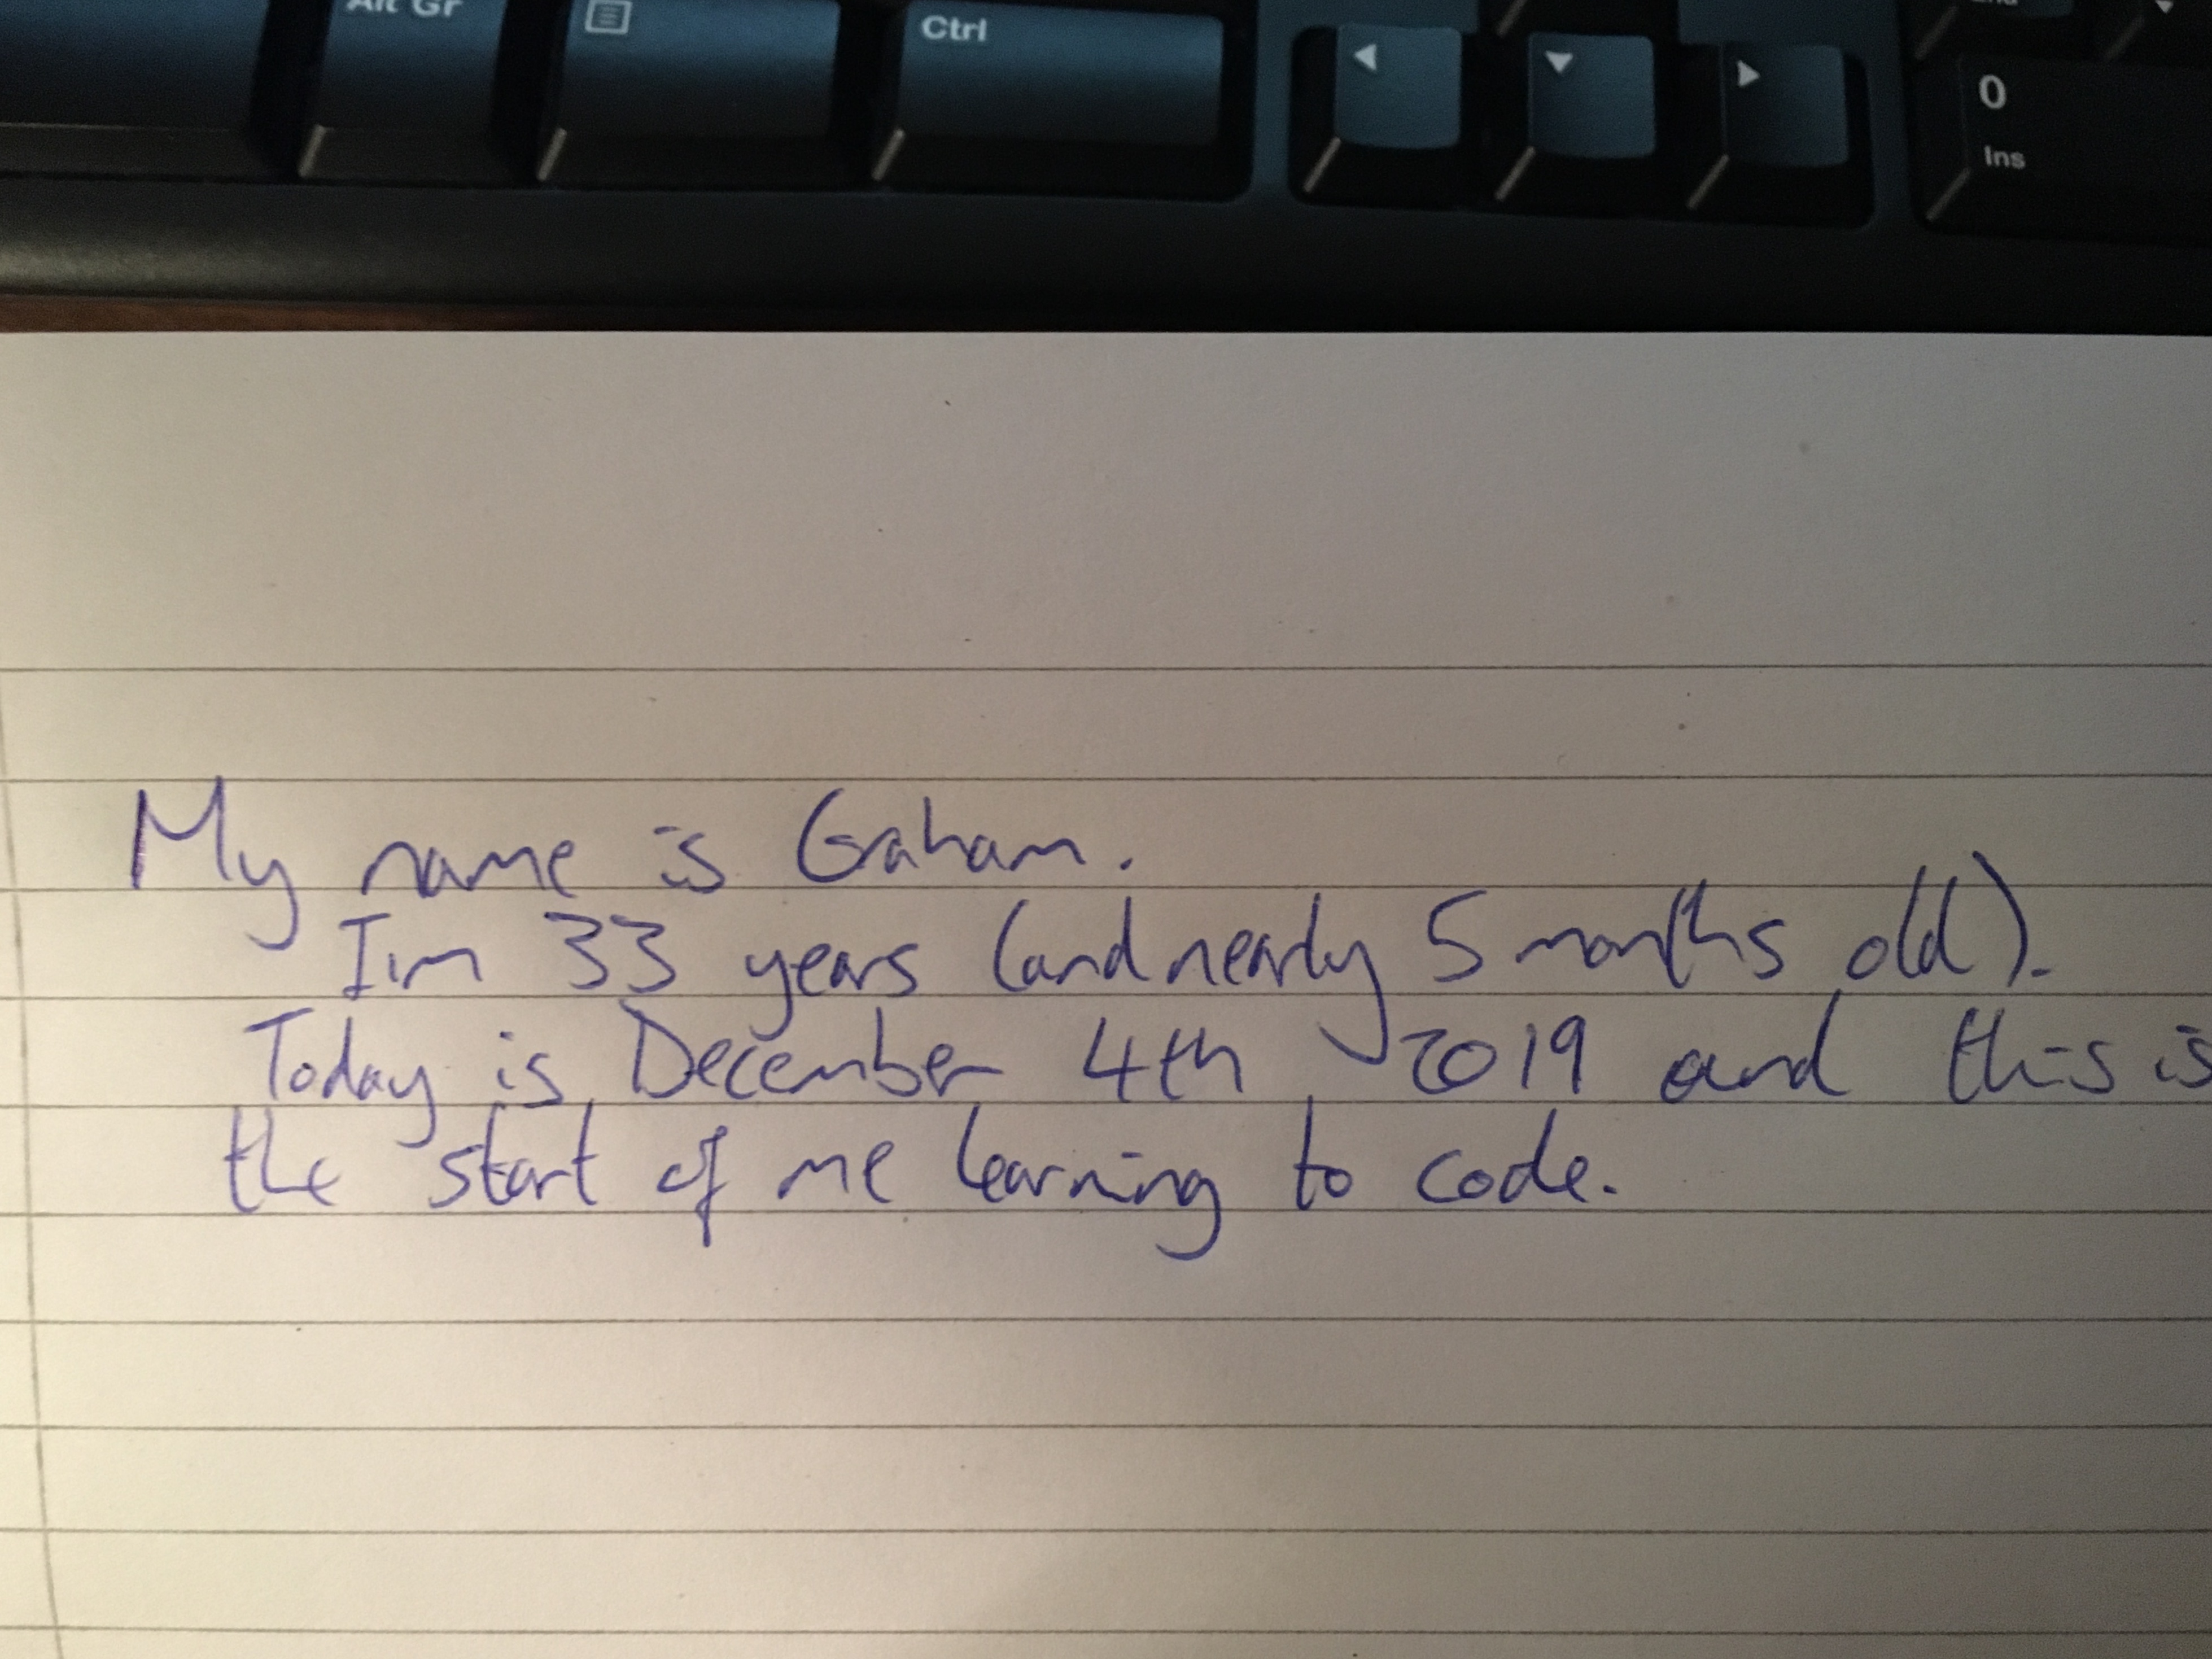 Alt Gr
Ctrl
0
Ins
My name is Graham.
I'm 33 years (and nearly 5 months old).
Today is December 4th 2019 and this is
the start of me learning to code.